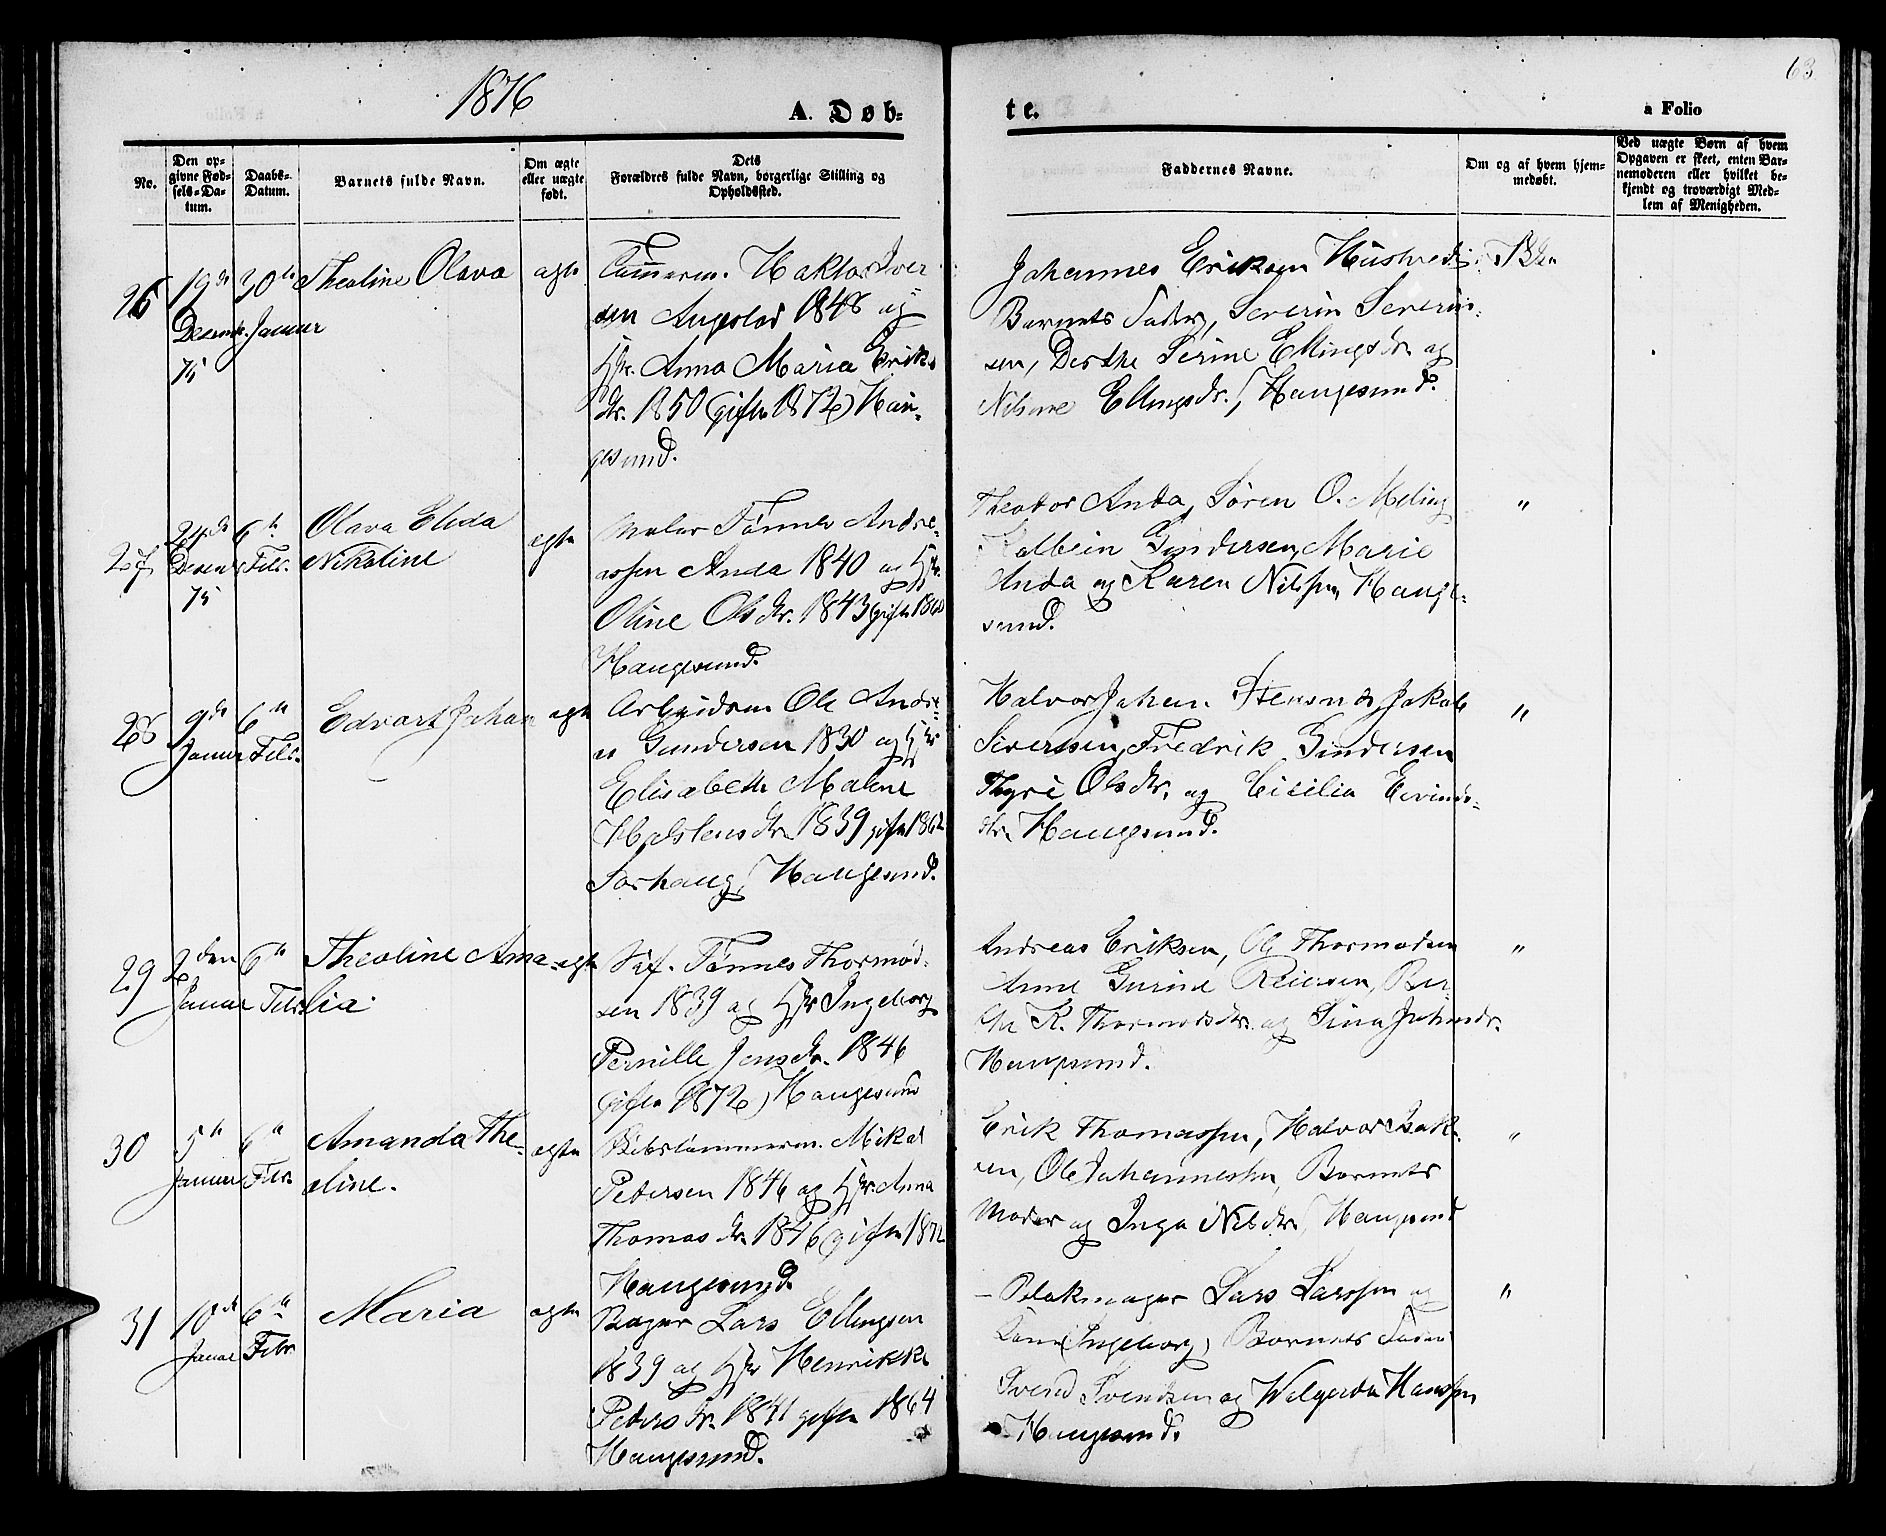 1876
63
A. Døb=
te.
a Folio
No.
Den op=
givne Fød=
sels=Da=
tum.
Daabs=
Datum.
Barnets fulde Navn.
Om ægte
eller uægte
født.
Dets
Forældres fulde Navn, borgerlige Stilling og
Opholdssted.
Faddernes Navne.
Om og af hvem hjem=
medøbt.
Ved uægte Børn af hvem
Opgaven er skeet, enten Bar=
nemoderen eller hvilket be=
kjendt og troværdigt Med=
lem af Menigheden.
26
19de
Desemb.
75
30te
Januar
Theoline Olava
Iver
sen 1848 og
Hstr. Anna Maria Eriks
dr. 1850 (gifte 1872) Hau-
gesund.
Johannes Eriksen
Barnets Fader, Severin Severin-
sen, Derthe Serine Ellingsdr. og
Nilsine Ellingsdr., Haugesund.
27
24de
Desem
75
6te
Febr.
Olava Elida
Nikoline
egte
Maler Tønnes Andre-
assen Anda 1840 og Hstr.
Oline Olsdr. 1843 gifte
Haugesund.
Theodor Anda, Søren O. Meling
Kolbein Gundersen, Marie
Anda og Karen Nilssen, Hauge-
sund.
"
28
9de
Januar
6te
Febr.
Edvart Johan
egte
Arbeidsm. Ole Andre-
as Gundersen 1830 og Hstr
Elisabeth Malene
dr. 1839 gifte 1862
Sørhaug, Haugesund.
Halvor Johan Jakob
Siversen, Fredrik Gundersen
Thyri Olsdr. og Cicilia Eivinds-
dr. Haugesund.
"
29
2den
Januar
6te
Febr
Theoline Ama-
lia.
egte
Tønnes Thormod-
sen 1839 og Hstr Ingeborg
Pernille Jensdr. 1846
gifte 1872, Haugesund
Andreas Eriksen, Ole Thormodsen
Anne Gurine Reiersen, Ber-
K. Thormodsdr. og Sina Johnsdr.
Haugesund.
"
30
5te
Januar
6te
Febr.
Amanda The-
oline.
egte
Skibstømmerm. Mikal
Petersen 1846 og Hstr. Anna
Thomasdr. 1846 gifte 1872
Haugesund.
Erik Thomassen, Halvor Isak-
sen, Ole Johannessen, Barnets
Moder og Inga Nilsdr., Haugesund
"
31
10de
Januar
6te
Febr
Maria
egte
Bager Lars Ellingsen
1839 og Hstr Henrikke
Petersdr. 1841 gifte 1864
Haugesund.
Blokmager Lars Larssen og
Kone (Ingeborg) Barnets Fader
Svend Svendsen og Welgerda Hanssen
Haugesund.
"